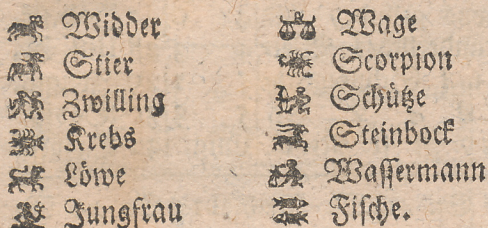 Widder
Stier
Zwilling
Krebs
Löwe
Jungfrau
Wage
Scorpion
Schütze
Steinbock
Wassermann
Fische.